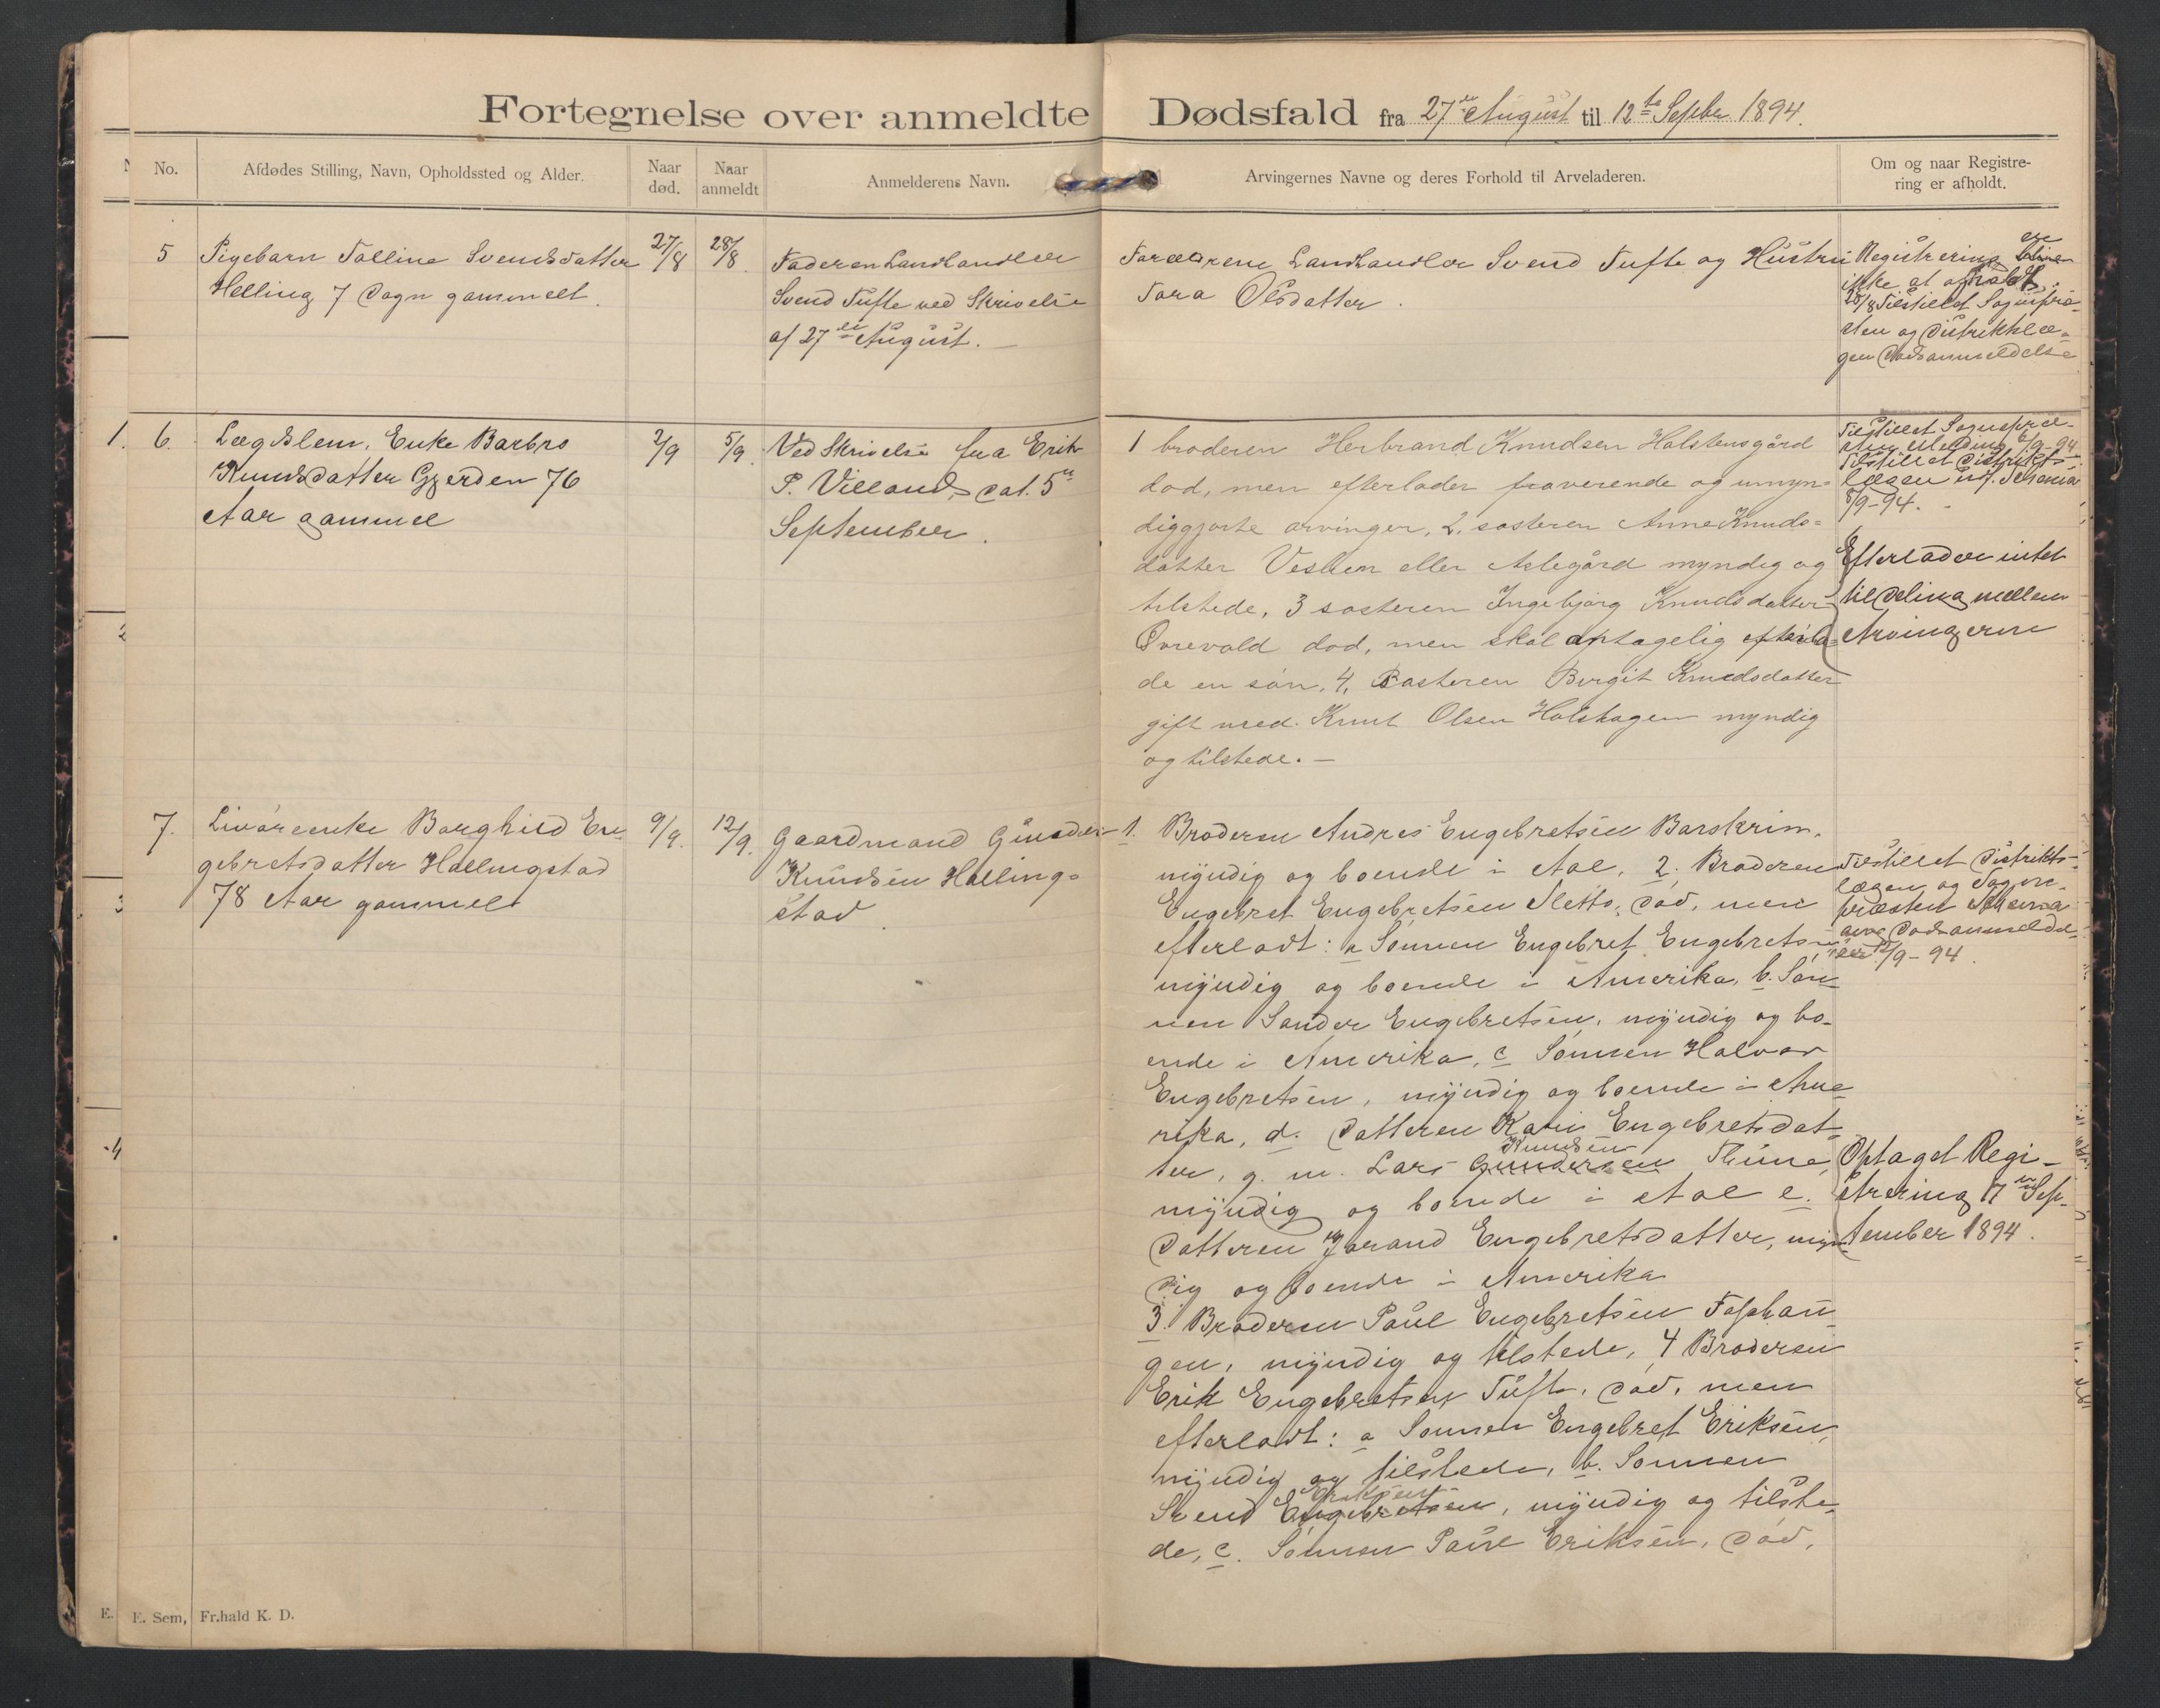 Fortegnelse over anmeldte Dødsfald fra 27de August til 12te Septbr 1894.
No.
Afdødes Stilling, Navn, Opholdssted og Alder.
Naar død.
Naar anmeldt
Anmelderens Navn.
Arvingernes Navne og deres Forhold til Arveladeren.
Om og naar Registre-
ring er afholdt.
5
Pigebarn Golline Svendsdatter
Helling 7 Dogn gammelt.
27/8
28/8.
Faderen Landhandler
Svend Tufte ved Skrivelse
af 27de August. —
Foreldrene Landhandler Svend Tufte og Hustru
Tora Olsdatter.
Registrering
ikke at afholdt.
28/8 Tilstillet Sognepræ-
sten og Distriktslæ-
gen Dødsanmeldelse
1.
6.
Lægdslem, Enke Barbro
Knudsdatter Gjerden 76
Aar gammel
2/9
5/9.
Ved Skrivelse fra Erik
P. Villand, dat. 5te
September.
1 broderen Herbrand Knudsen Holstensgård
død, men efterlader fraverende og umyn-
diggjorte arvinger, 2. søsteren Anne Knuds-
datter Veslien eller Aslegård myndig og
tilstede, 3 søsteren Ingebjørg Knudsdatter
Ørevold død, men skal antagelig efterla-
de en søn, 4, Søsteren Birgit Knudsdatter
gift med Knut Olsen Holshagen myndig
og tilstede. —
Tilstillet Sognepræ-
sten Melding 6/9-94
Tilstillet Distrikts-
lægen udf. Schema
8/9-94.
Efterlader intet
til Deling mellem
Arvingerne
7.
Livøreenke Borghild En-
gebretsdatter Hallingstad
78 Aar gammel
9/9.
12/9.
Gaardmand Gunder
Knudsen Halling-
stad.
1. Broderen Andres Engebretsen Barskrim,
myndig og boende i Aal, 2. Broderen
Engebret Engebretsen Sletto, død, men
efterladt: a Sønnen Engebret Engebretsen
myndig og boende i Amerika, b. Søn-
nen Sander Engebretsen, myndig og bo-
ende i Amerika, c Sønnen Halvor
Engebretsen, myndig og boende i Ame-
rika, d. Datteren Kari Engebretsdat-
Knudsen
ter, g. m. Lars Gundersen Thune,
myndig og boende i Aal e.
Datteren Jorand Engebretsdatter, myn-
dig og boende i Amerika
3. Broderen Paul Engebretsen Fosshau-
gen, myndig og tilstede, 4 Broderen
Erik Engebretsen Tufte, død, men
efterladt: a Sønnen Engebret Eriksen,
myndig og tilstede, b. Sønnen
Eriksen
Svend Engebretsen, myndig og tilste-
de, c. Sønnen Paul Eriksen, død,
Tilstillet Distrikts-
lægen og Sogne-
præsten Schema
Dødsanmeldel-
ser 12/9-94.
Optaget Regi-
strering 17de Sep-
tember 1894.
E. Sem, Fr.hald K. D.